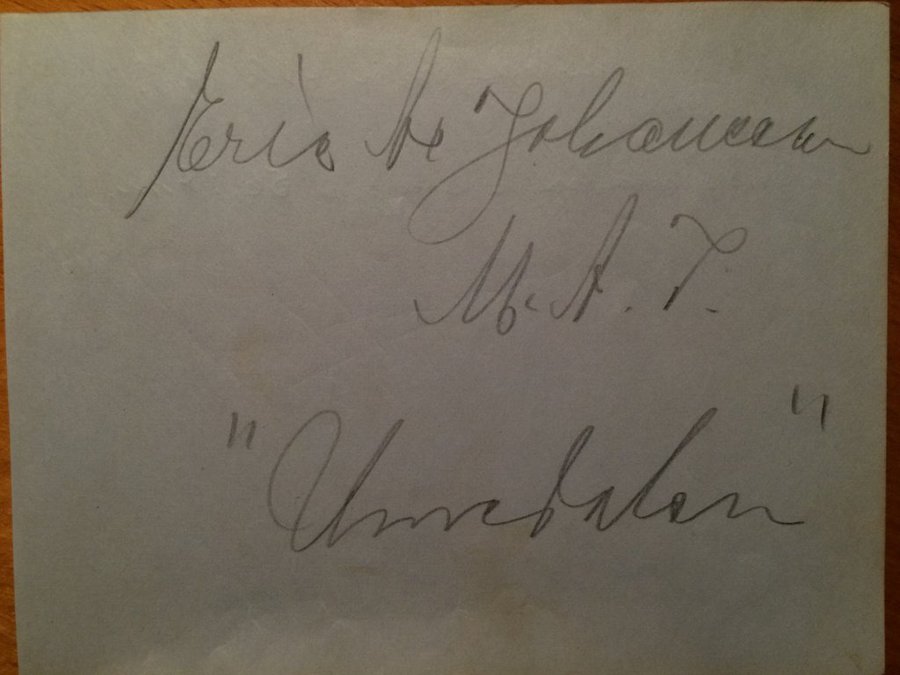 Eric Ax Johansson
M. A. T.
"Umedalen"